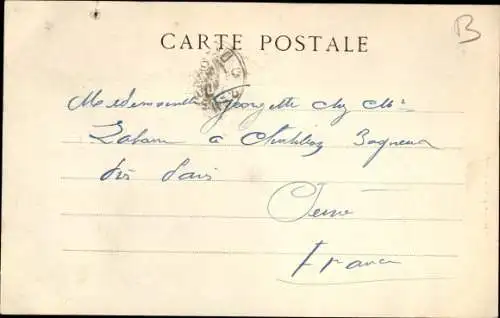 B
CARTE POSTALE
Mademoiselle Georgette chez Mr
a Chatillon Bagneux
Paris
Seine
France